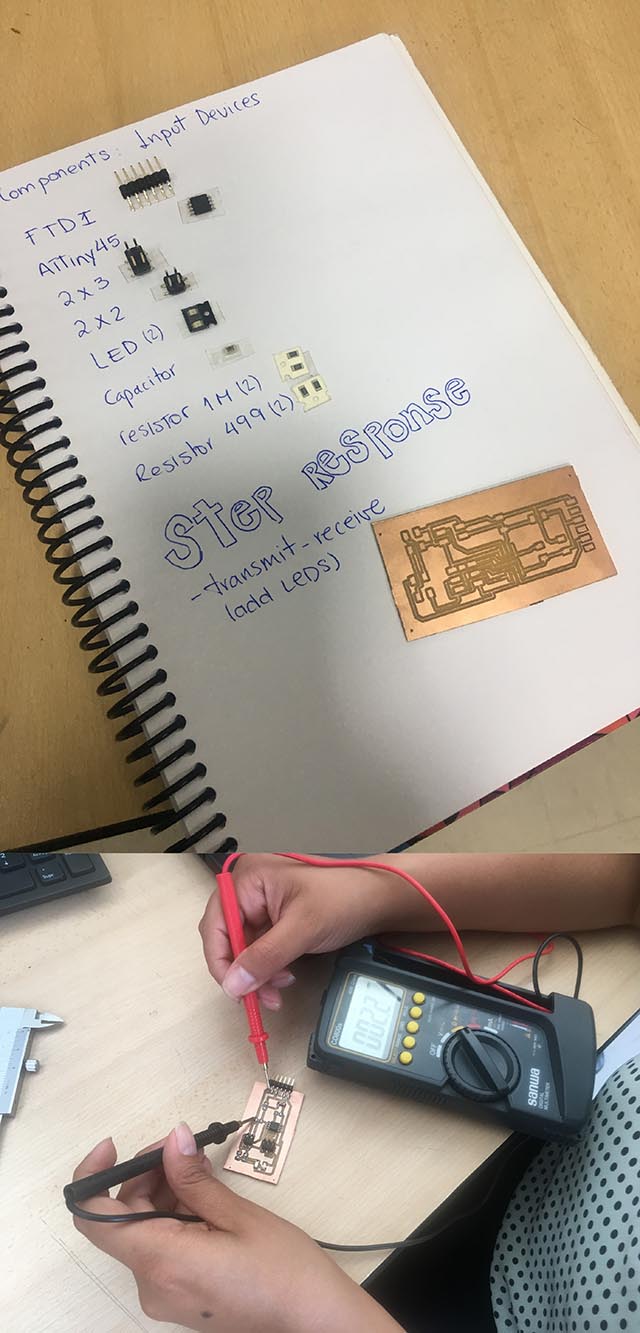 Components: Input Devices
FTDI
ATTiny45
2x3
2x2
LED (2)
Capacitor
resistor 1M (2)
Resistor 499 (2)
Step Response
-transmit-receive
(add LEDs)
OFF
sanwa
DIGITAL
MULTIMETER